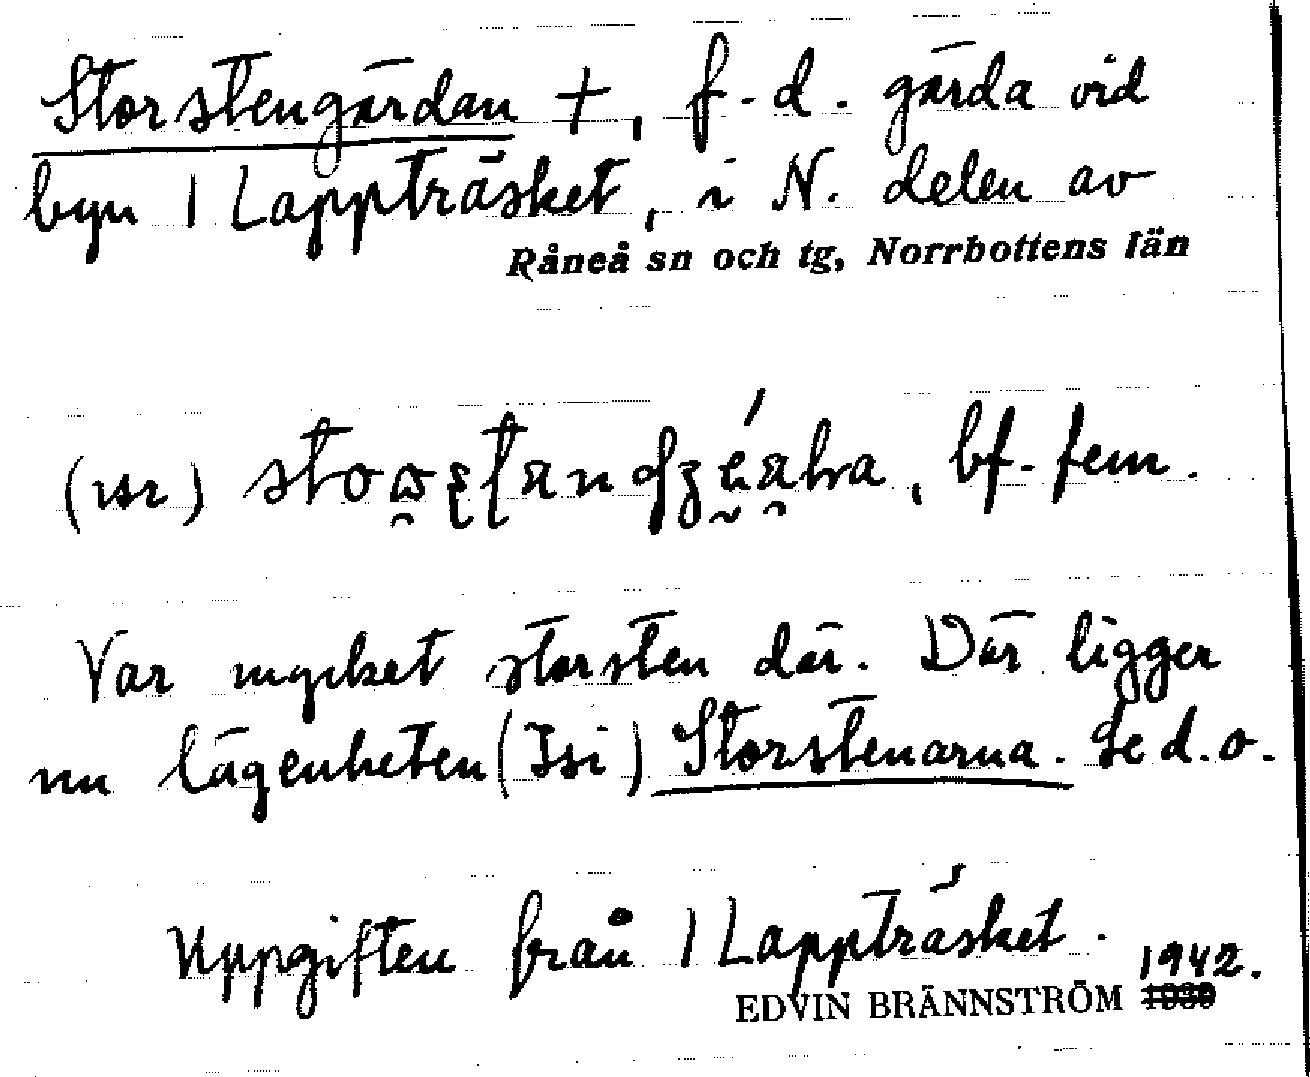 Storstengärdan +, f.d. gärda vid
byn 1 Lappträsket, i N. delen av
Råneå sn och tg, Norrbottens län
bf. fem.
Var mycket storsten där. Där ligger
nu lägenheten (Isi) Storstenarna. Se d.o.
Uppgiften från 1 Lappträsket.
1942.
EDVIN BRÄNNSTRÖM 1939